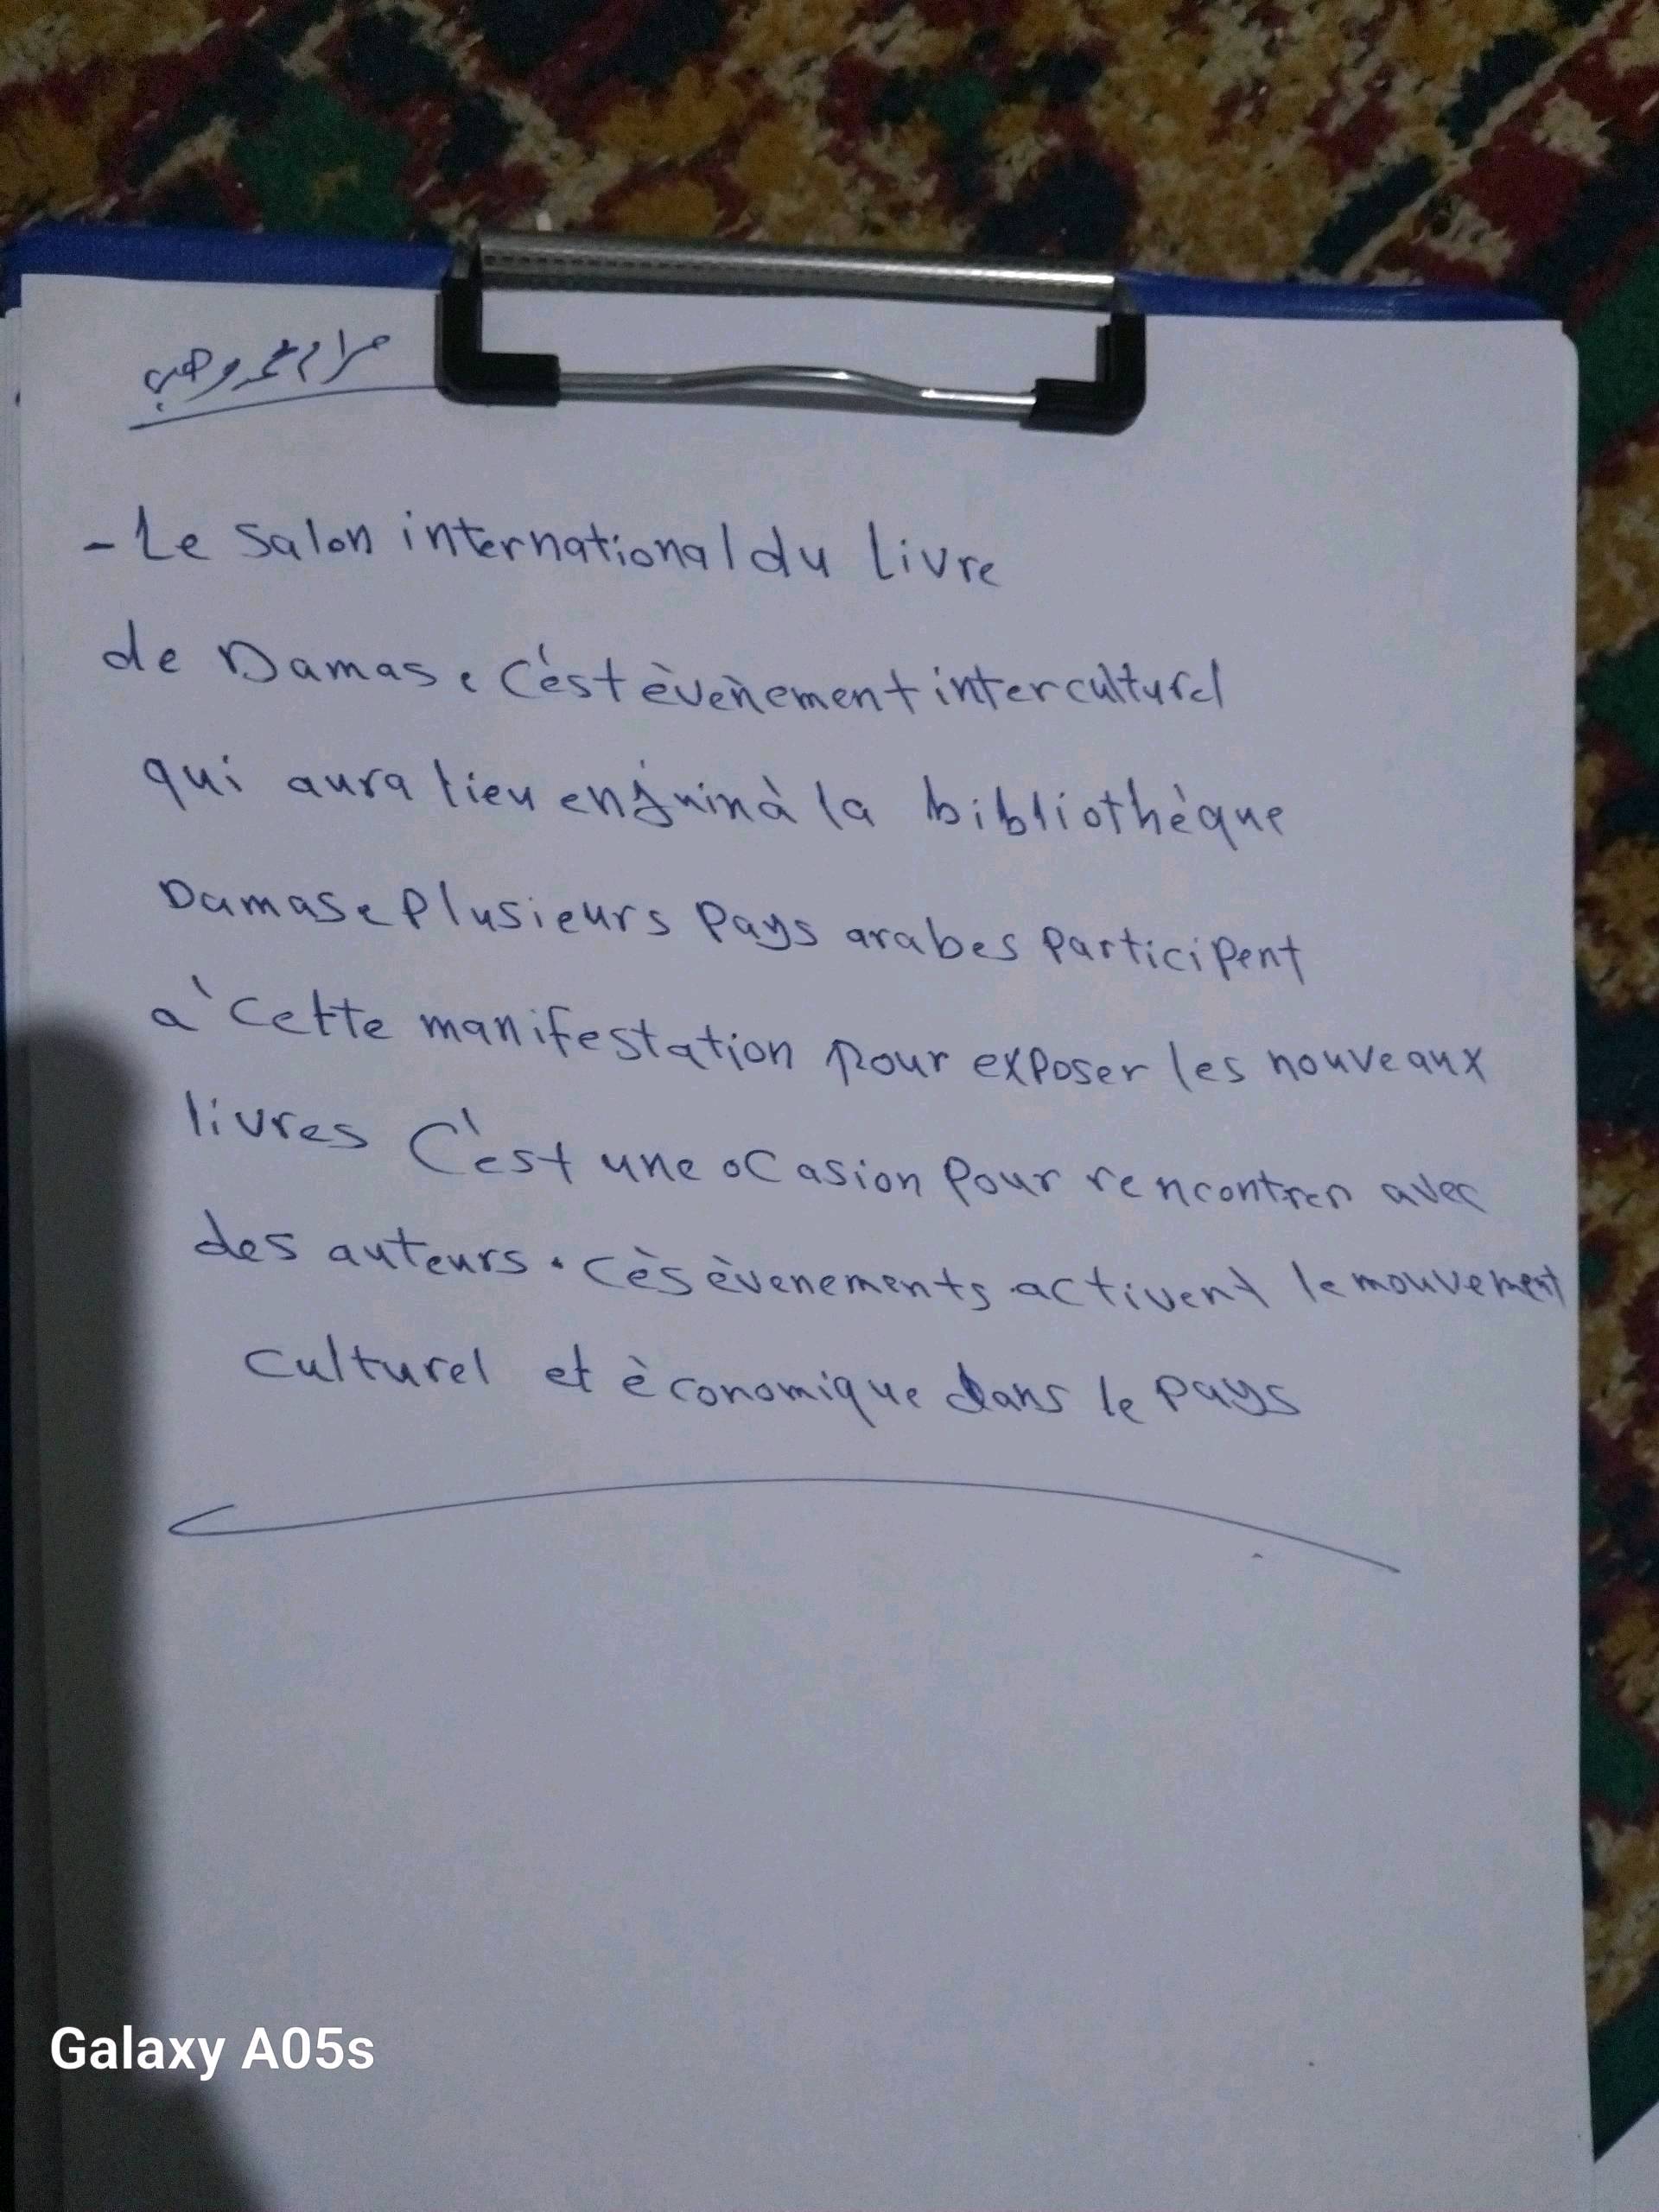 مرام محمد وهبي
- Le salon international du livre
de Damas, C'est èvenement interculturel
qui aura lieu en juin à la bibliothèque
Damas, Plusieurs Pays arabes Participent
à cette manifestation pour exposer les nouveaux
livres C'est une ocasion pour rencontrer avec
des auteurs. Cès èvenements activent le mouvement
culturel et èconomique dans le pays
Galaxy A05s